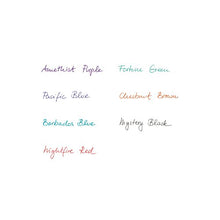 Amethist Purple
Fortune Green
Pacific Blue
Chestnut Brown
Barbados Blue
Mystery Black
Nightfire Red